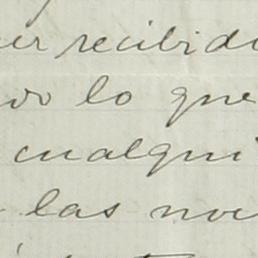 er recibido
do lo que
cualqui
las no